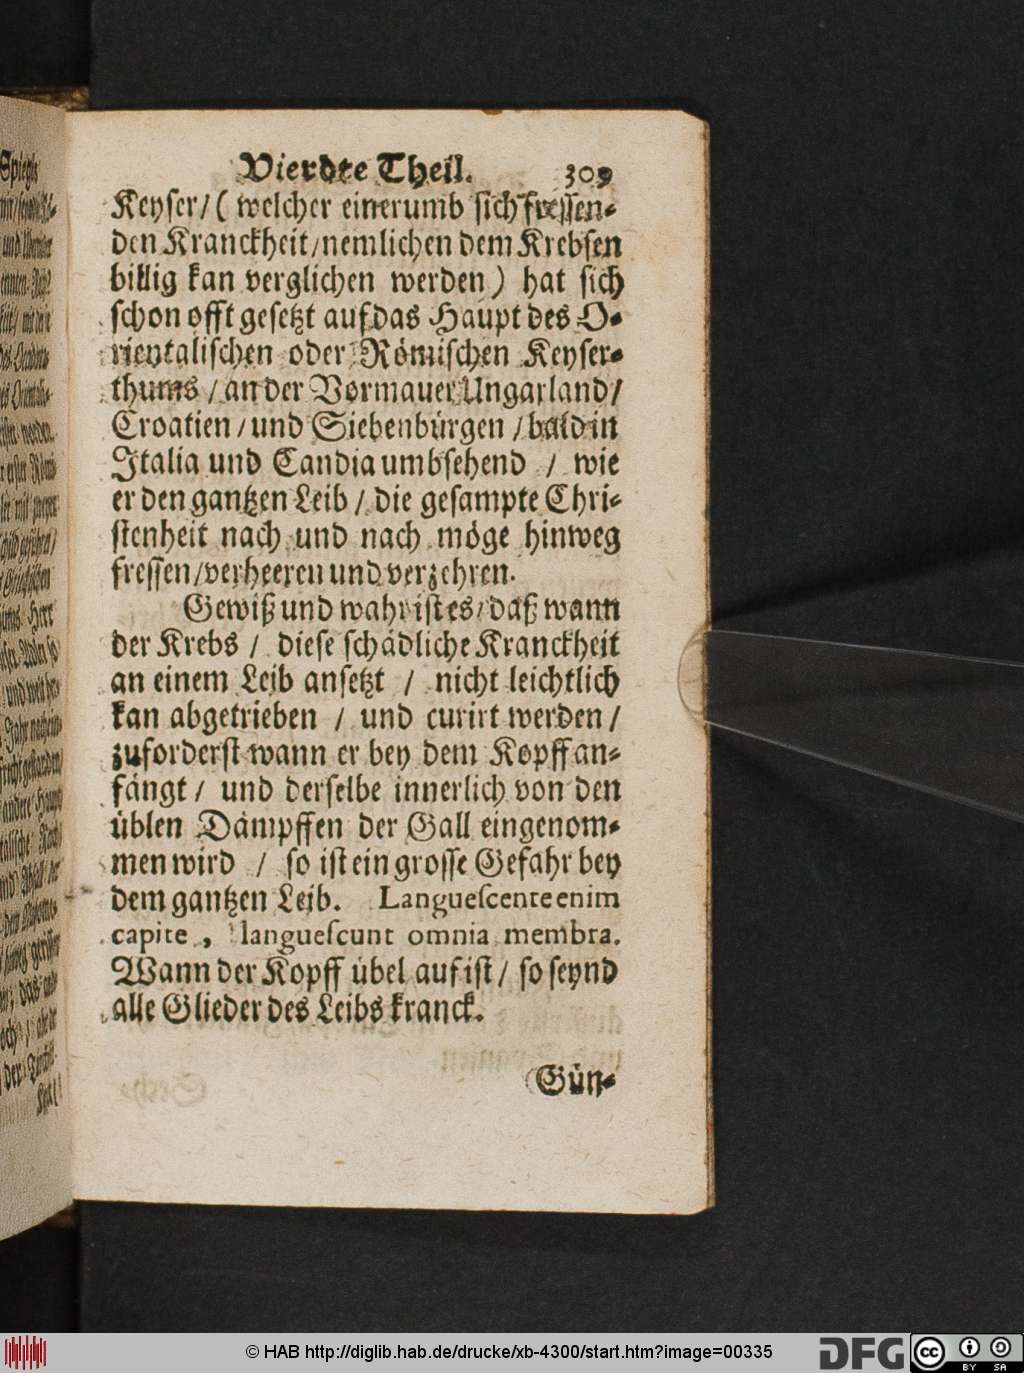 Vierdte Theil. 309
Keyser/ ( welcher einer umb sich fressen-
den Kranckheit/ nemlichen dem Krebsen
billig kan verglichen werden ) hat sich
schon offt gesetzt auf das Haupt des O-
rientalischen oder Römischen Keyser-
thums / an der Vormauer Ungarland/
Croatien / und Siebenbürgen / bald in
Italia und Candia umbsehend / wie
er den gantzen Leib / die gesampte Chri-
stenheit nach und nach möge hinweg
fressen/ verheeren und verzehren.
Gewiß und wahr ist es/ daß wann
der Krebs / diese schädliche Kranckheit
an einem Leib ansetzt / nicht leichtlich
kan abgetrieben / und curirt werden /
zuforderst wann er bey dem Kopff an-
fängt / und derselbe innerlich von den
üblen Dämpffen der Gall eingenom-
men wird / so ist ein grosse Gefahr bey
dem gantzen Leib. Languescente enim
capite, languescunt omnia membra.
Wann der Kopff übel auf ist / so seynd
alle Glieder des Leibs kranck.
Gün-
© HAB http://diglib.hab.de/drucke/xb-4300/start.htm?image=00335
DFG
cc BY SA